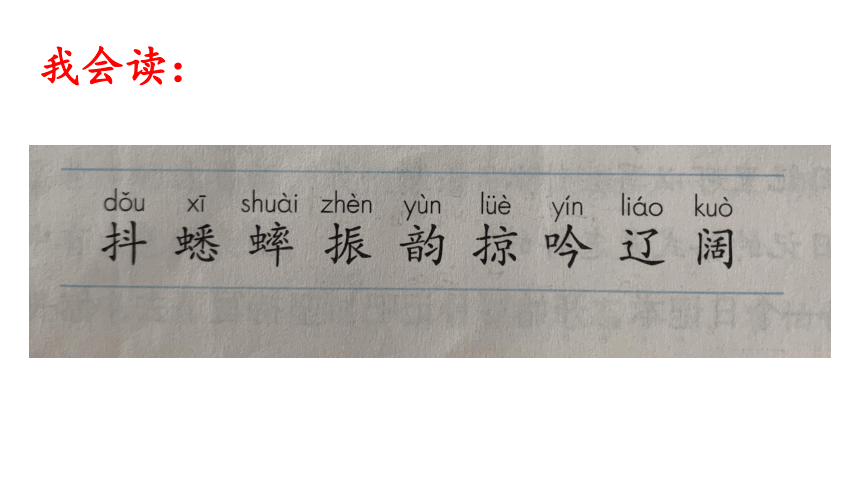 我会读：
dǒu xī shuài zhèn yùn lüè yín liáo kuò
抖 蟋 蟀 振 韵 掠 吟 辽 阔